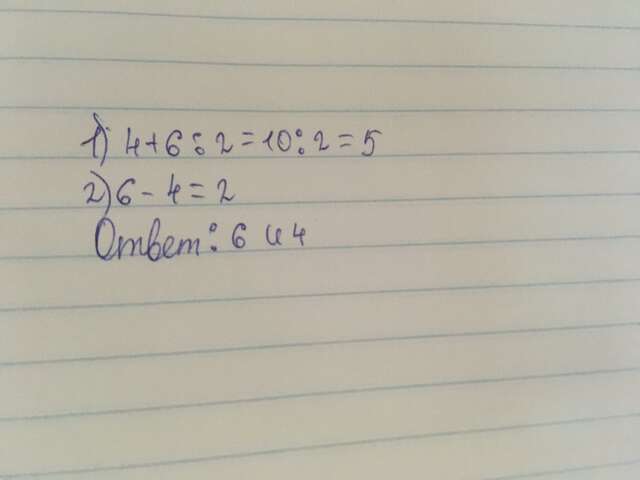 1) 4+6:2=10:2=5
2) 6-4=2
Ответ: 6 и 4